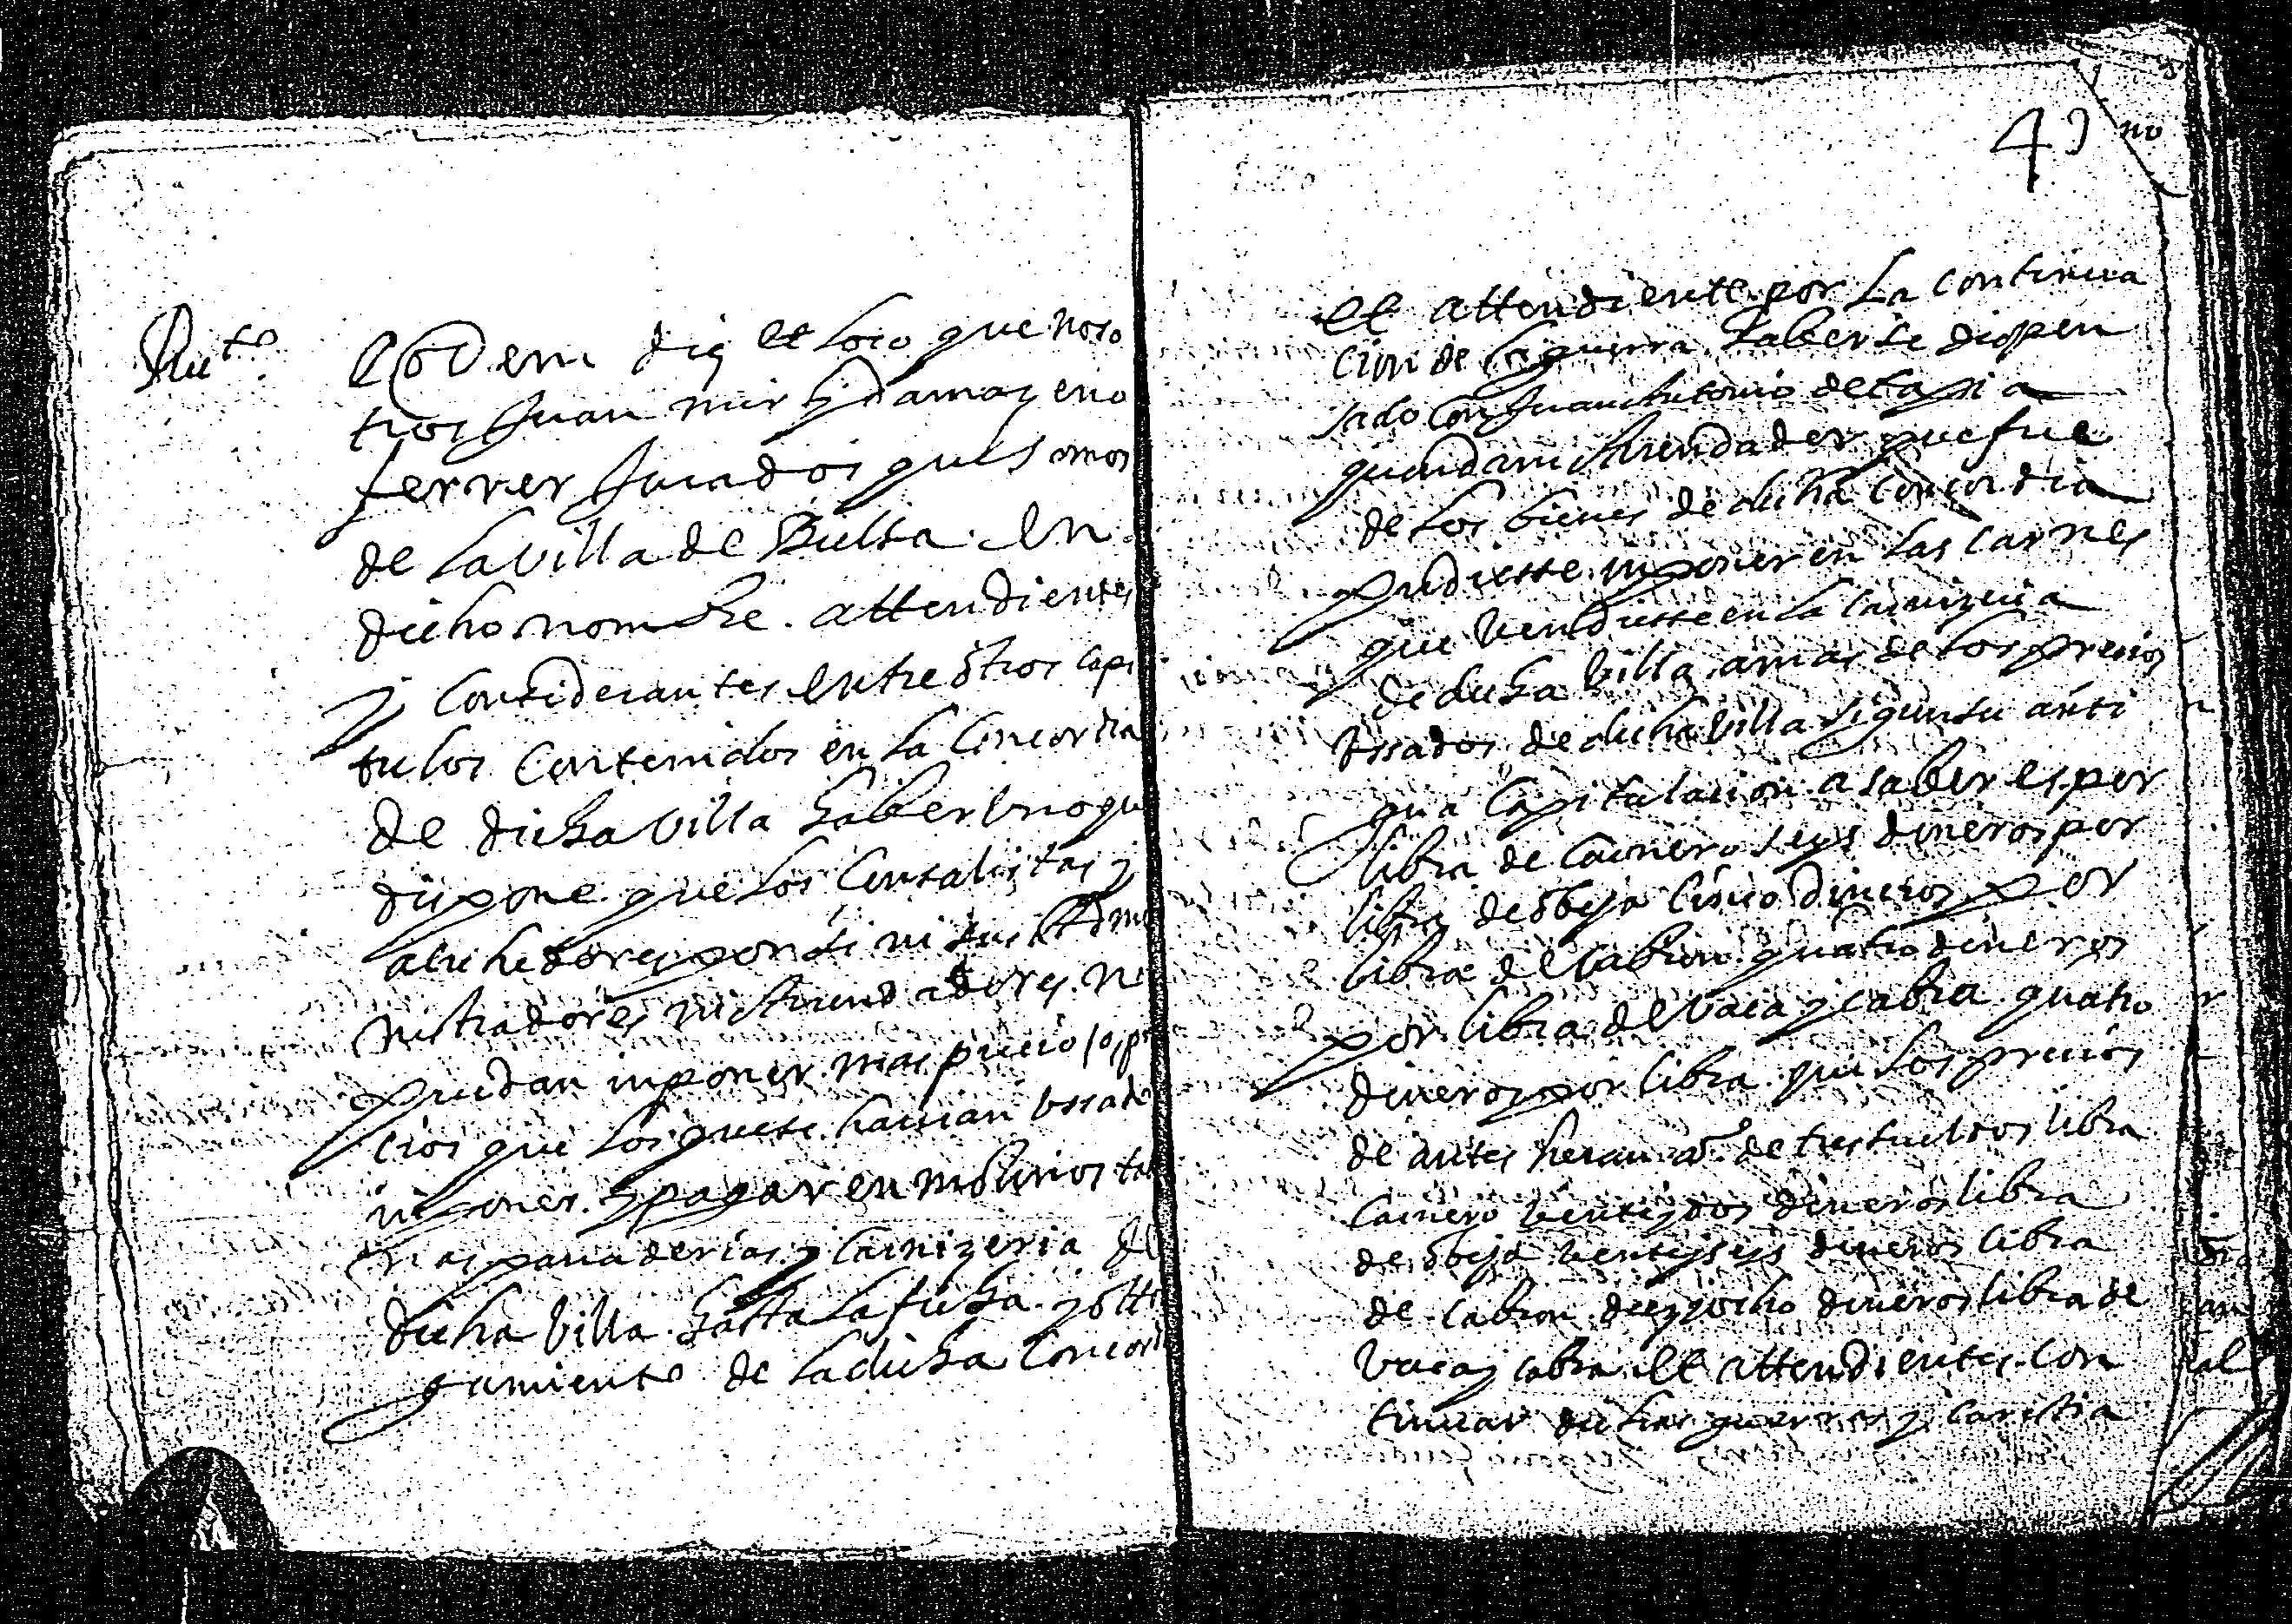 Eodem die et loco que noso
tros Juan mir y damazeno
ferrer Jurados que somos
de la Villa de Quelsa en
dicho nombre attendientes
y considerantes entre otros capi
tulos contenidos en la Concordia
de dicha villa haber uno que
dispone que los Censalistas y
acrehedores por si ni sus Admi
nistradores ni Arrendadores ni
puedan inponer mas precio los pre
cios que los que se hauian ussado
inponer y pagar en molinos
panaderias y Carnizeria de
dicha Villa hasta la fecha y otor
gamiento de la dicha Concordia
49
Et attendiente por La continua
cion de la guerra haberse dispen
sado con Juan Antonio de tapia
quondam Arrendador que fue
de los bienes de dicha Concordia
pudiesse inponer en las carnes
que Vendiesse en la Carnizeria
de dicha Villa a mas de los precios
Ussados de dicha Villa segun su anti
gua Capitulacion a saber es por
libra de Carnero seys dineros por
libra de obeja cinco dineros por
libra de Cabron quatro dineros
por libra de Vaca y cabra quatro
dineros por libra que los precios
de antes heran a de tres sueldos libra
Carnero Ventiydos dineros libra
de obeja Ventyseys dineros libra
de Cabron diezyocho dineros libra de
Vaca y cabra et attendientes con
tinuar dichas guerras y caristia